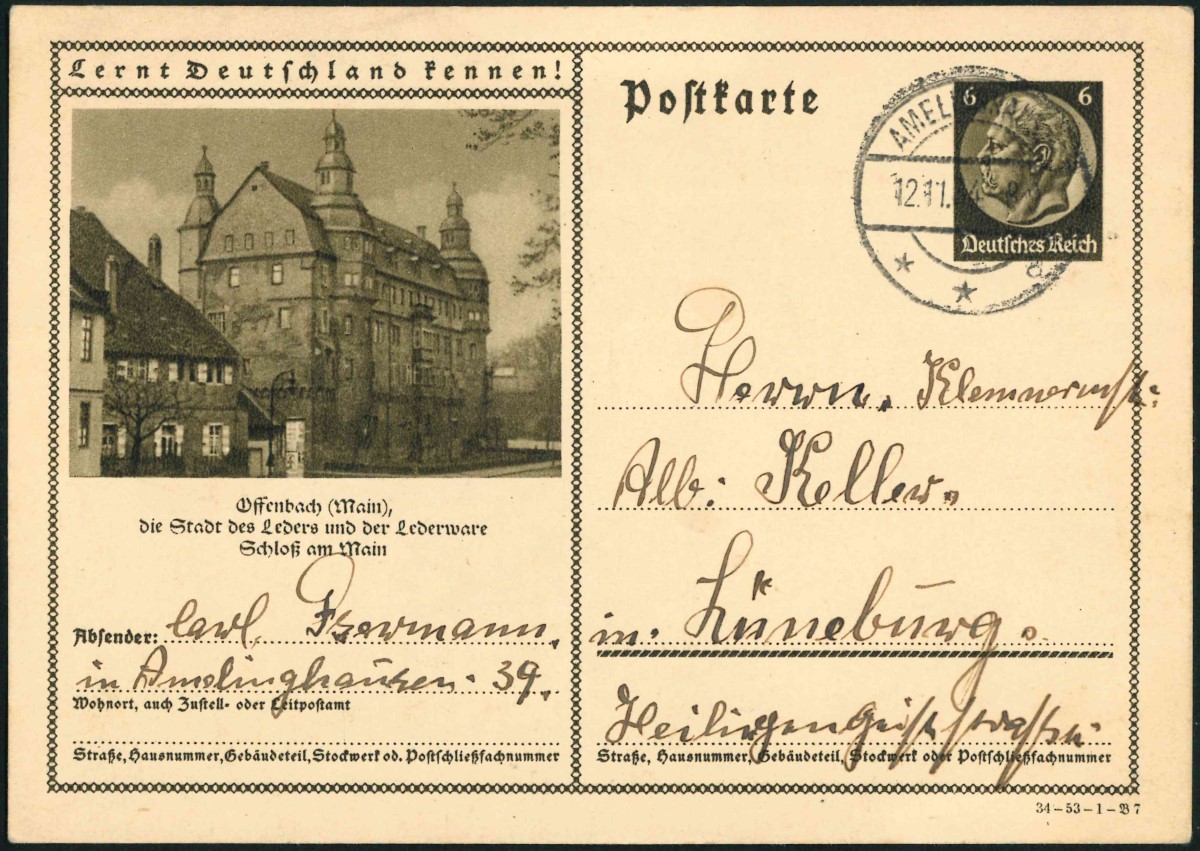 Lernt Deutschland kennen!
Offenbach (Main),
die Stadt des Leders und der Lederware
Schloß am Main
Absender: Carl
in Amelinghausen. 39.
Wohnort, auch Zustell- oder Leitpostamt
Straße, Hausnummer, Gebäudeteil, Stockwerk od. Postschließfachnummer
Postkarte
6 6
Deutsches Reich
12.11.
Herrn.
Alb: Keller.
in. Lüneburg.
Heiligengeiststraße
Straße, Hausnummer, Gebäudeteil, Stockwerk oder Postschließfachnummer
34-53-1-B7